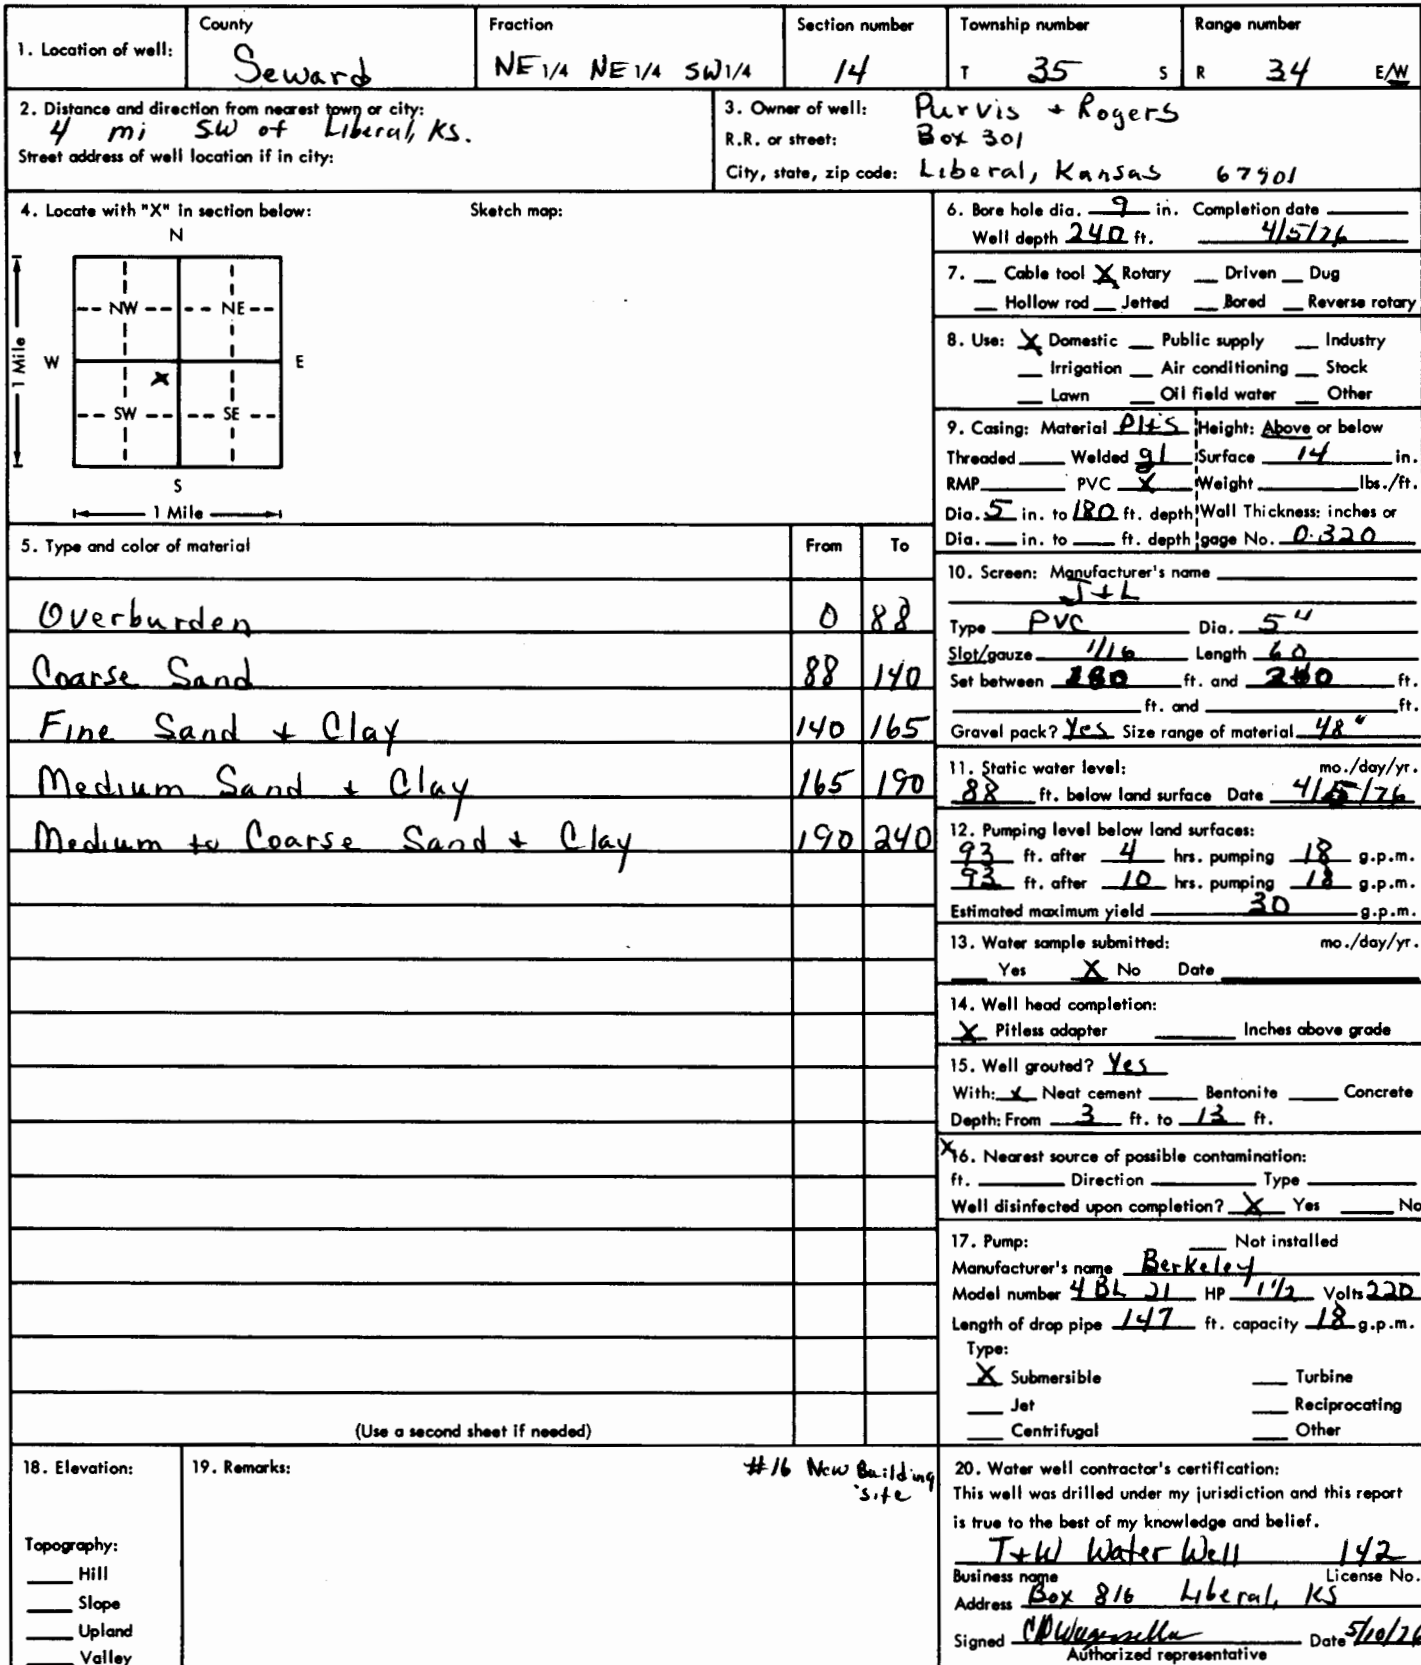 1. Location of well: County Seward Fraction NE 1/4 NE 1/4 SW 1/4 Section number 14 Township number T 35 S Range number R 34 E/W
2. Distance and direction from nearest town or city:
4 mi SW of Liberal, KS.
Street address of well location if in city:
3. Owner of well: Purvis + Rogers
R.R. or street: Box 301
City, state, zip code: Liberal, Kansas 67901
4. Locate with "X" in section below: Sketch map:
N
NW NE
W E
X
SW SE
S
1 Mile
1 Mile
5. Type and color of material From To
Overburden 0 88
Coarse Sand 88 140
Fine Sand + Clay 140 165
Medium Sand + Clay 165 190
Medium to Coarse Sand + Clay 190 240
(Use a second sheet if needed)
6. Bore hole dia. 9 in. Completion date
Well depth 240 ft. 4/5/76
7. Cable tool X Rotary Driven Dug
Hollow rod Jetted Bored Reverse rotary
8. Use: X Domestic Public supply Industry
Irrigation Air conditioning Stock
Lawn Oil field water Other
9. Casing: Material Height: Above or below
Threaded Welded gl Surface 14 in.
RMP PVC X Weight lbs./ft.
Dia. 5 in. to 180 ft. depth Wall Thickness: inches or
Dia. in. to ft. depth gage No. 0.320
10. Screen: Manufacturer's name
J+L
Type PVC Dia. 5"
Slot/gauze 1/16 Length 60
Set between 180 ft. and 240 ft.
ft. and ft.
Gravel pack? Yes Size range of material 48"
11. Static water level: mo./day/yr.
88 ft. below land surface Date 4/5/76
12. Pumping level below land surfaces:
93 ft. after 4 hrs. pumping 18 g.p.m.
93 ft. after 10 hrs. pumping 18 g.p.m.
Estimated maximum yield 30 g.p.m.
13. Water sample submitted: mo./day/yr.
Yes X No Date
14. Well head completion:
X Pitless adapter Inches above grade
15. Well grouted? Yes
With: x Neat cement Bentonite Concrete
Depth: From 3 ft. to 13 ft.
X16. Nearest source of possible contamination:
ft. Direction Type
Well disinfected upon completion? X Yes No
17. Pump: Not installed
Manufacturer's name Berkeley
Model number 4BL 21 HP 1 1/2 Volts 220
Length of drop pipe 147 ft. capacity 18 g.p.m.
Type:
X Submersible Turbine
Jet Reciprocating
Centrifugal Other
18. Elevation:
Topography:
Hill
Slope
Upland
Valley
19. Remarks: #16 New Building
site
20. Water well contractor's certification:
This well was drilled under my jurisdiction and this report
is true to the best of my knowledge and belief.
T+W Water Well 142
Business name License No.
Address Box 816 Liberal, KS
Signed Date 5/10/76
Authorized representative